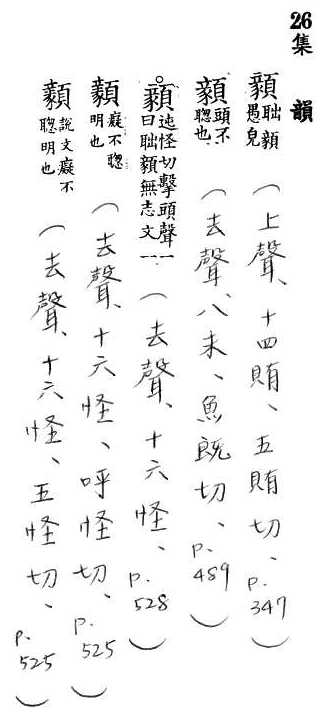 26集韻
顡聉顡愚皃(上聲、十四賄、五賄切、p.347)
顡頭不聰也(去聲、八未、魚旣切、p.489)
顡迍怪切擊頭聲一曰聉顡無志文一(去聲、十六怪、p.528)
顡癡不聦明也(去聲、十六怪、呼怪切、p.525)
顡說文癡不聦明也(去聲、十六怪、五怪切、p.525)